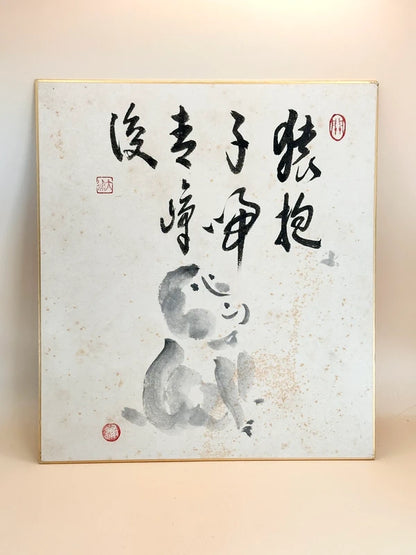 猿抱
子帰
青嶂
後